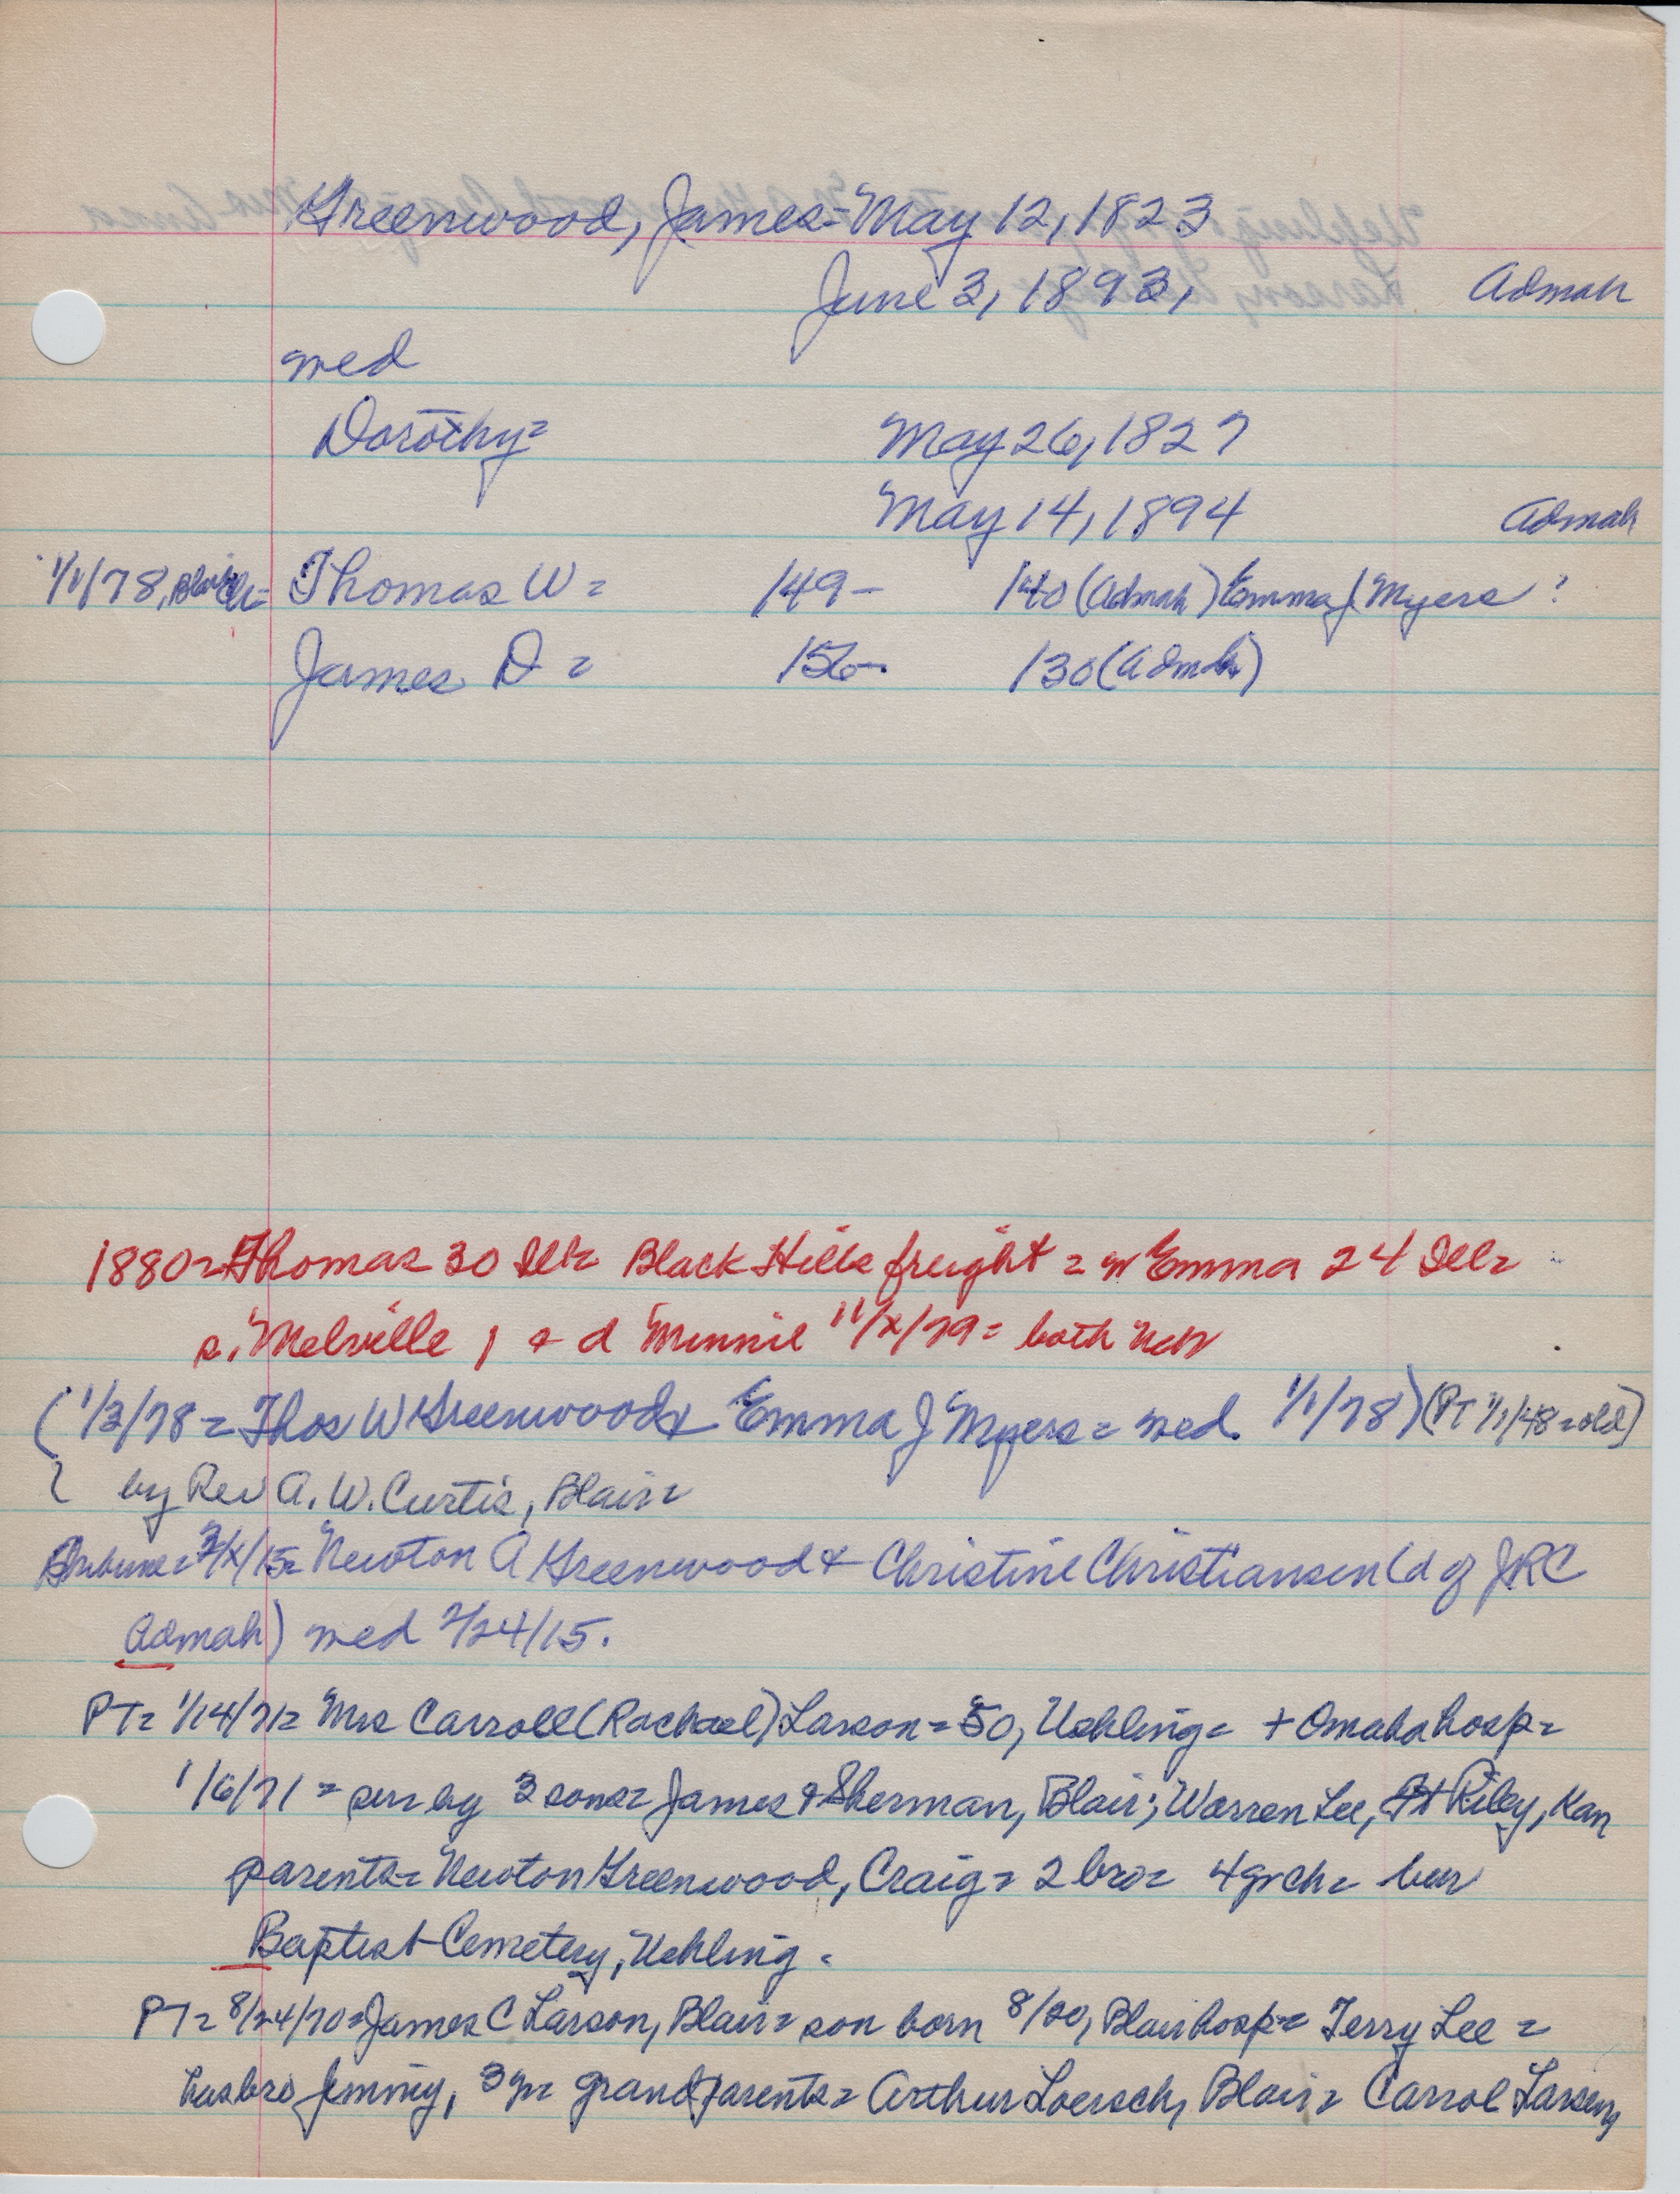 Greenwood, James = May 12, 1823
June 3, 1893, Admah
med
Dorothy = May 26, 1827
May 14, 1894 Admah
1/1/78, Thomas W = 149- 140 (Admah) Emma J Myers
James D = 156- 130 (Admah)
1880 = Thomas 30 Ill = Black Hills freight = w Emma 24 Ill =
s. Melville 1 + d Minnie 11/x/79 = both Neb
(1/3/78 = Thos W Greenwood & Emma J Myers = med. 1/1/78) (PT 1/1/48 = old)
by Rev A. W. Curtis, Blair =
3/4/15 = Newton A Greenwood + Christine Christiansen (d of JRC
Admah) med 2/24/15.
PT = 1/14/71 = Mrs Carroll (Rachael) Larson = 50, Uehling = + Omaha hosp =
1/6/71 = sur by 3 sons = James & Sherman, Blair; Warren Lee, Ft Riley, Kan
parents = Newton Greenwood, Craig = 2 bro = 4 grch = bur
Baptist Cemetery, Uehling.
PT = 8/24/70 = James C Larson, Blair = son born 8/20, Blair hosp = Terry Lee =
has bro Jimmy, 3 yr = grandparents = Arthur Loersch, Blair = Carrol Larsen,